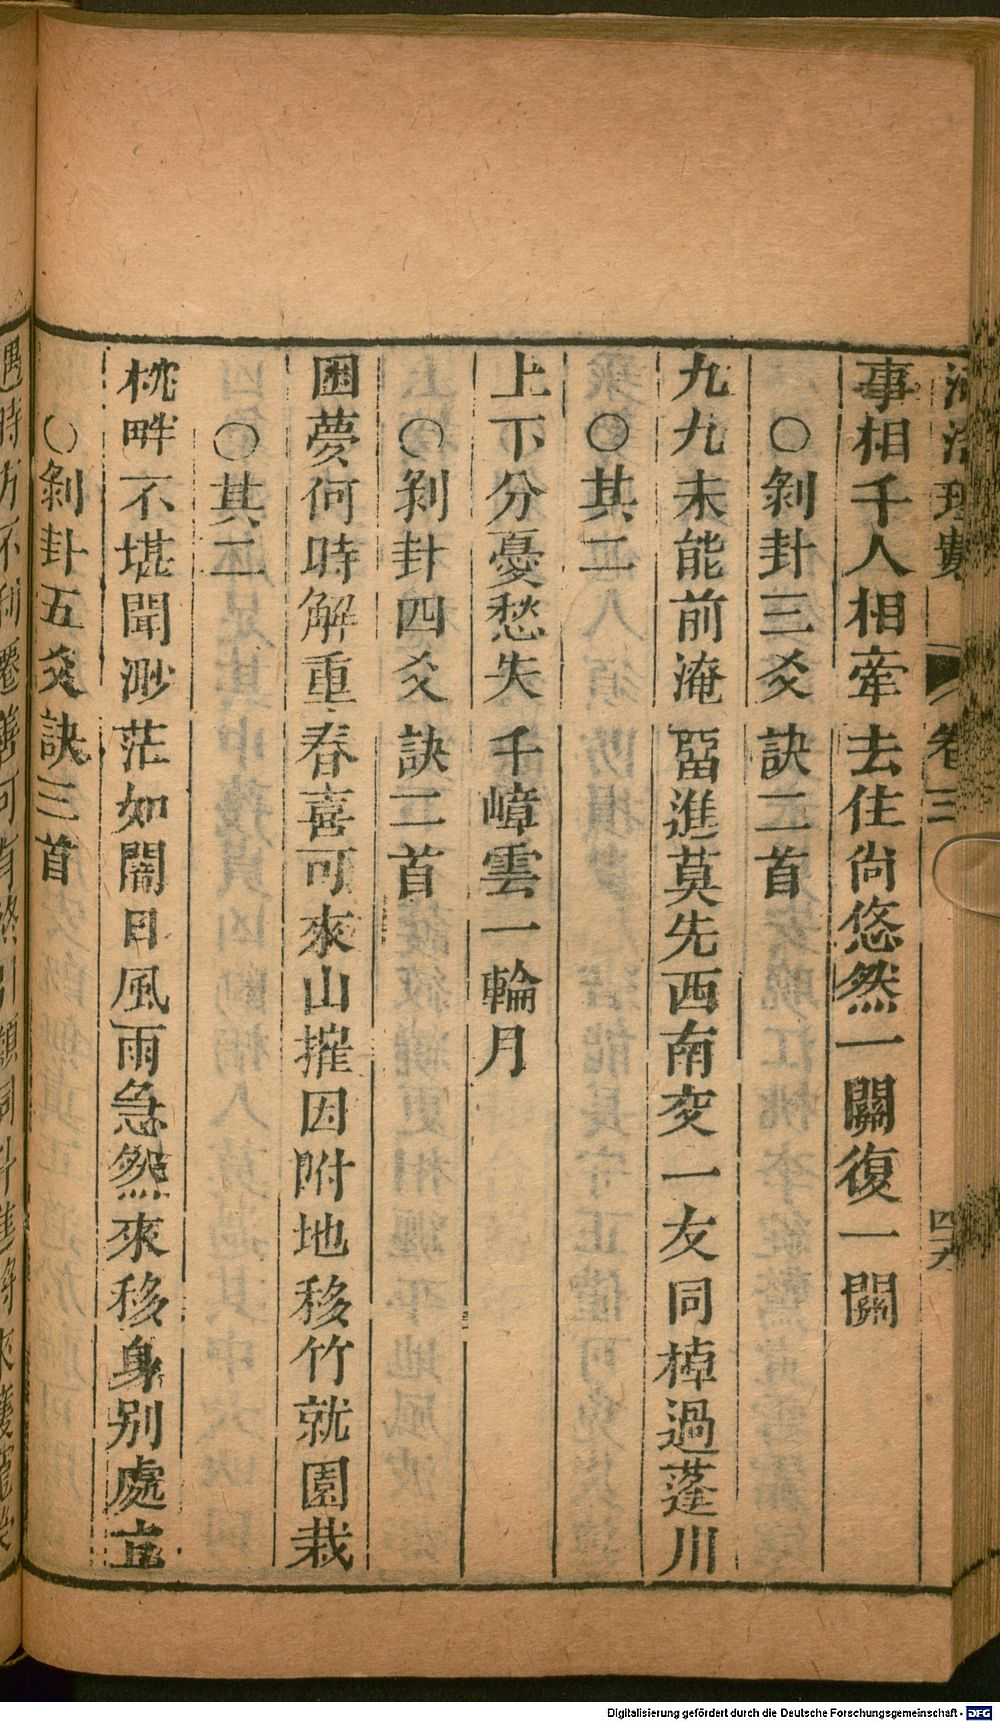 河洛理數 卷三 四九
事相千人相牽去住尙悠然一關復一關
○剝卦三爻訣二首
九九未能前淹留進莫先西南交一友同棹過蓬川
○其二
上下分憂愁失千嶂雲一輪月
○剝卦四爻訣二首
困夢何時解重春喜可來山摧因附地移竹就園栽
○其二
枕畔不堪聞渺茫如闇日風雨急然來移身別處立
○剝卦五爻訣三首
遇時方不利遷善可
Digitalisierung gefördert durch die Deutsche Forschungsgemeinschaft - DFG